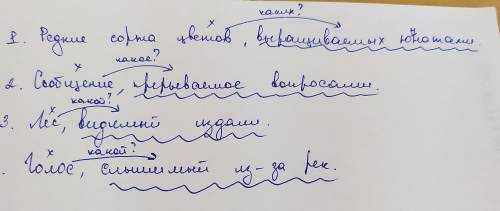 каких?
1. Редкие сорта цветов, выращиваемых юннатами.
какое?
2. Сообщение, прерываемое вопросами.
какой?
3. Лес, видимый издали.
какой?
. Голос, слышимый из-за рек.